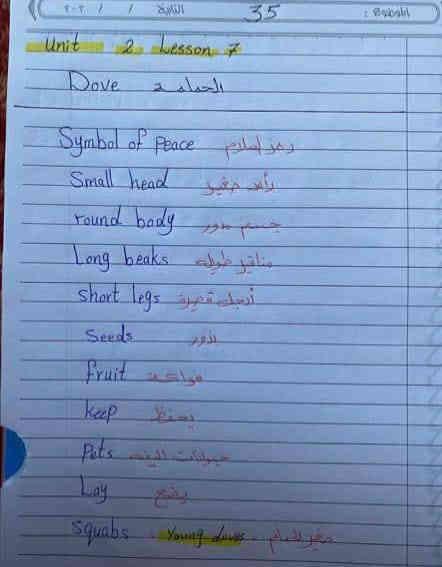 التاريخ / / ٢٠٢ 35 الموضوع :
Unit 2 Lesson 7
Dove الحمامة
Symbol of Peace رمز السلام
Small head رأس صغير
round body جسم مدور
Long beaks مناقير طويله
short legs أرجل قصيرة
Seeds بذور
fruit فواكه
keep يحفظ
Pets حيوانات اليفه
Lay يضع
squabs . Young doves .